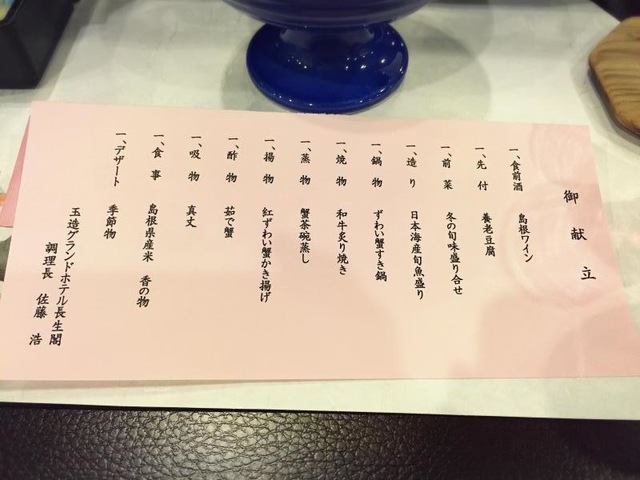 御献立
一、食前酒 島根ワイン
一、先付 養老豆腐
一、前菜 冬の旬味盛り合せ
一、造り 日本海産旬魚盛り
一、鍋物 ずわい蟹すき鍋
一、焼物 和牛炙り焼き
一、蒸物 蟹茶碗蒸し
一、揚物 紅ずわい蟹かき揚げ
一、酢物 茹で蟹
一、吸物 真丈
一、食事 島根県産米 香の物
一、デザート 季節物
玉造グランドホテル長生閣
調理長 佐藤 浩